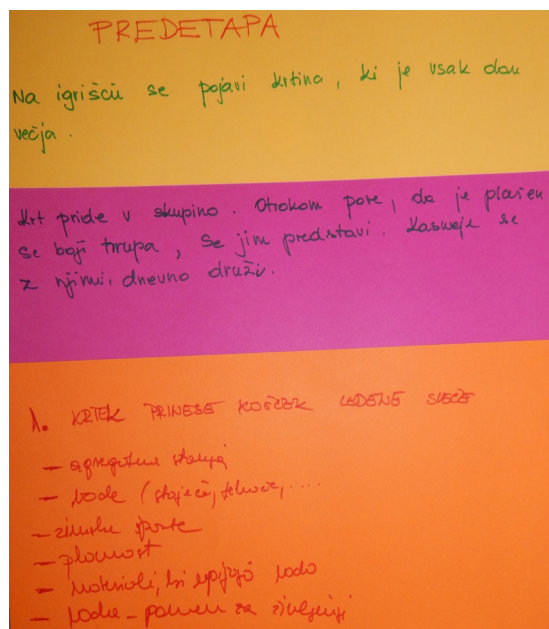 PREDETAPA
Na igrišču se pojavi krtina, ki je vsak dan
večja.
Krt pride v skupino. Otrokom pove, da je plašen
se boji hrupa, se jim predstavi. Kasneje se
z njimi dnevno druži.
1. KRTEK PRINESE KOŠČEK LEDENE SVEČE
- agregatna stanja
- vode (stoječe, tekoče,....
- zimske športe
- plovnost
- materiali, ki vpijajo vodo
- voda - pomen za življenje